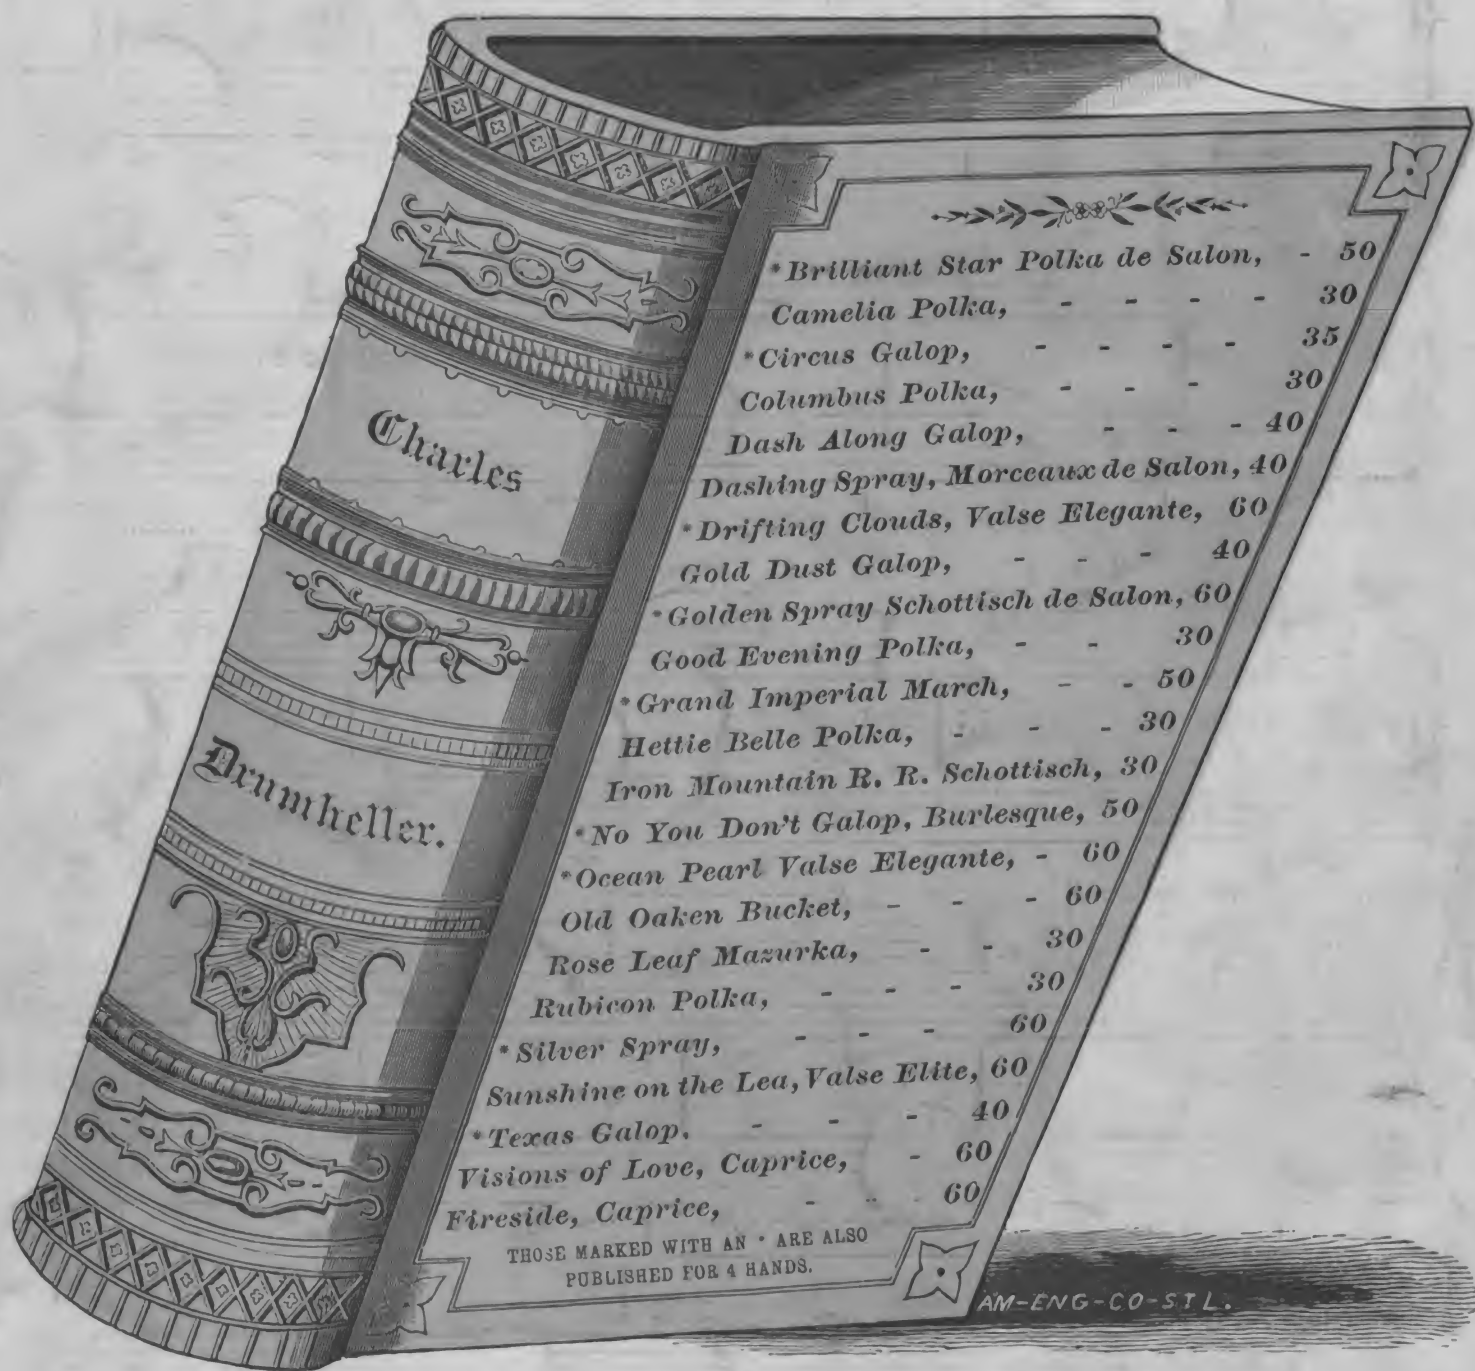 Charles
Drumheller.
*Brilliant Star Polka de Salon, - 50
Camelia Polka, - - - - 30
*Circus Galop, - - - - 35
Columbus Polka, - - - 30
Dash Along Galop, - - - 40
Dashing Spray, Morceaux de Salon, 40
*Drifting Clouds, Valse Elegante, 60
Gold Dust Galop, - - - 40
*Golden Spray Schottisch de Salon, 60
Good Evening Polka, - - 30
*Grand Imperial March, - - 50
Hettie Belle Polka, - - - 30
Iron Mountain R. R. Schottisch, 30
*No You Don't Galop, Burlesque, 50
*Ocean Pearl Valse Elegante, - 60
Old Oaken Bucket, - - - 60
Rose Leaf Mazurka, - - 30
Rubicon Polka, - - - 30
*Silver Spray, - - - 60
Sunshine on the Lea, Valse Elite, 60
*Texas Galop. - - - 40
Visions of Love, Caprice, - 60
Fireside, Caprice, - - - 60
THOSE MARKED WITH AN * ARE ALSO
PUBLISHED FOR 4 HANDS.
AM-ENG-CO-STL.